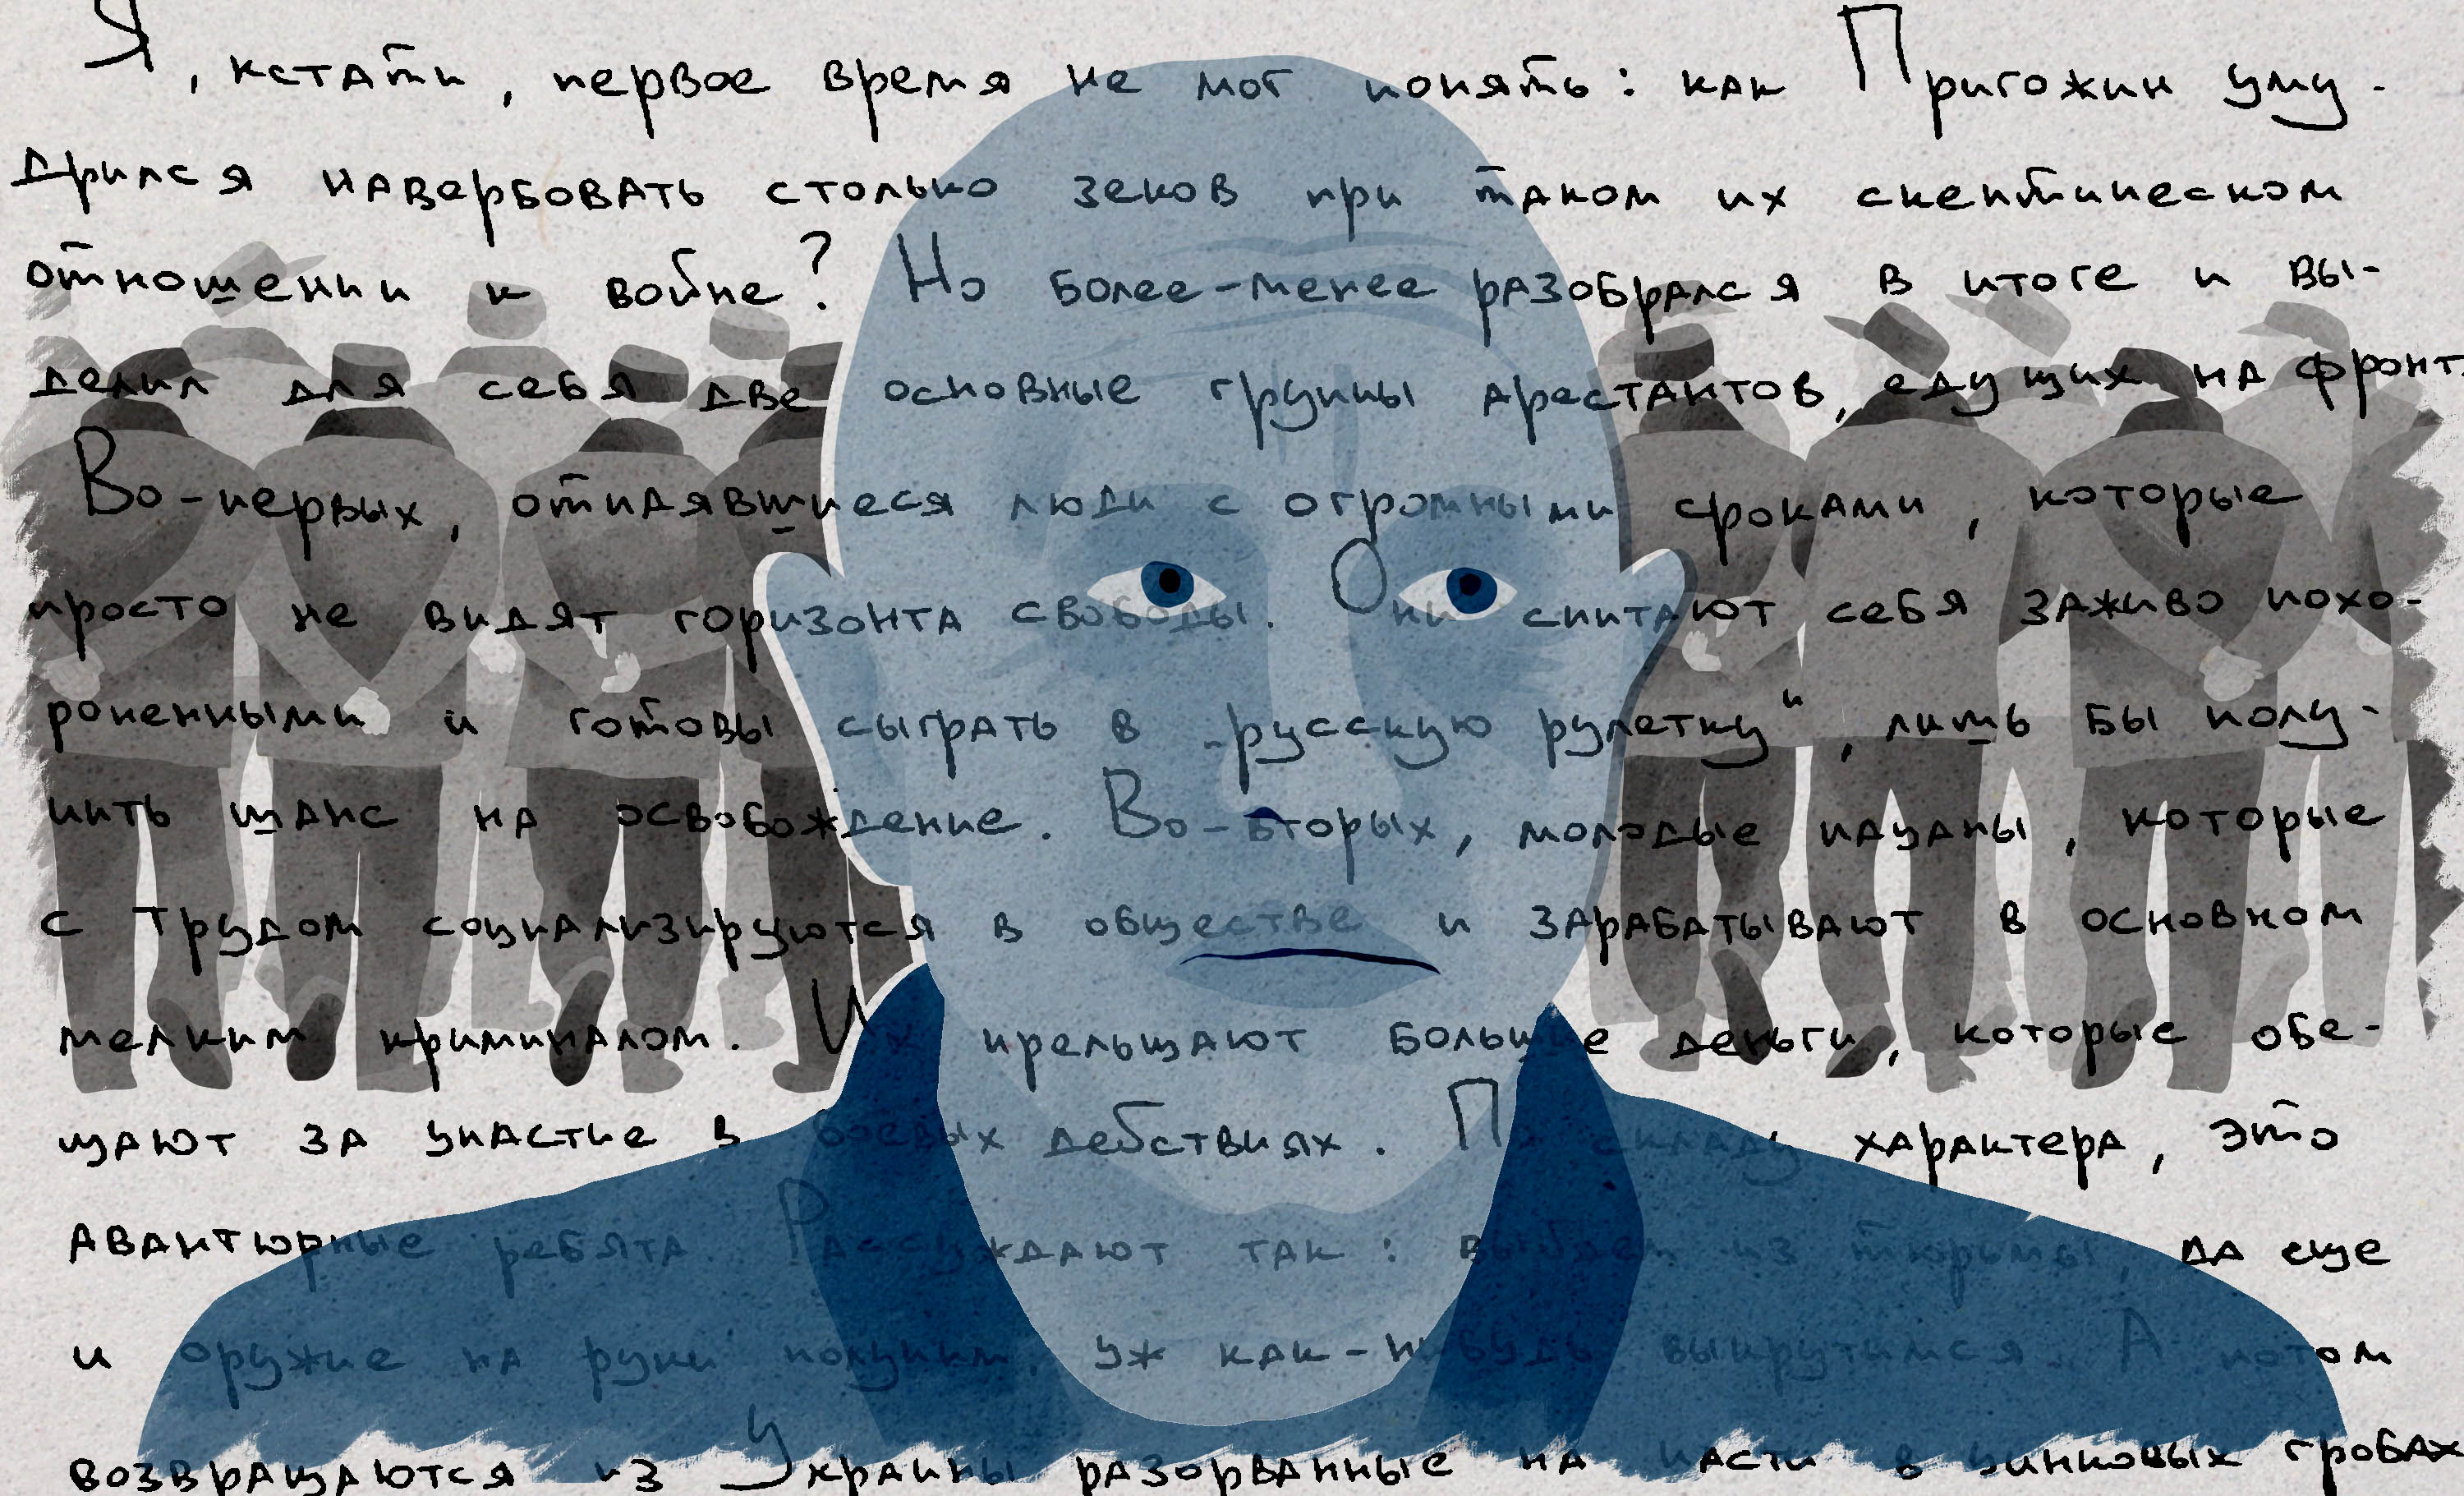 Я, кстати, первое время не мог понять: как Пригожин уму-
дрился навербовать столько зеков при таком их скептическом
отношении к войне? Но более-менее разобрался в итоге и вы-
делил для себя две основные группы арестантов, едущих на фронт.
Во-первых, отчаявшиеся люди с огромными сроками, которые
просто не видят горизонта свободы. Они считают себя заживо похо-
роненными и готовы сыграть в „русскую рулетку", лишь бы полу-
чить шанс на освобождение. Во-вторых, молодые пацаны, которые
с трудом социализируются в обществе и зарабатывают в основном
мелким криминалом. Их прельщают большие деньги, которые обе-
щают за участие в боевых действиях. По складу характера, это
авантюрные ребята. Рассуждают так: выйдем из тюрьмы, да еще
и оружие на руки получим, уж как-нибудь выкрутимся. А потом
возвращаются из Украины разорванные на части в цинковых гробах